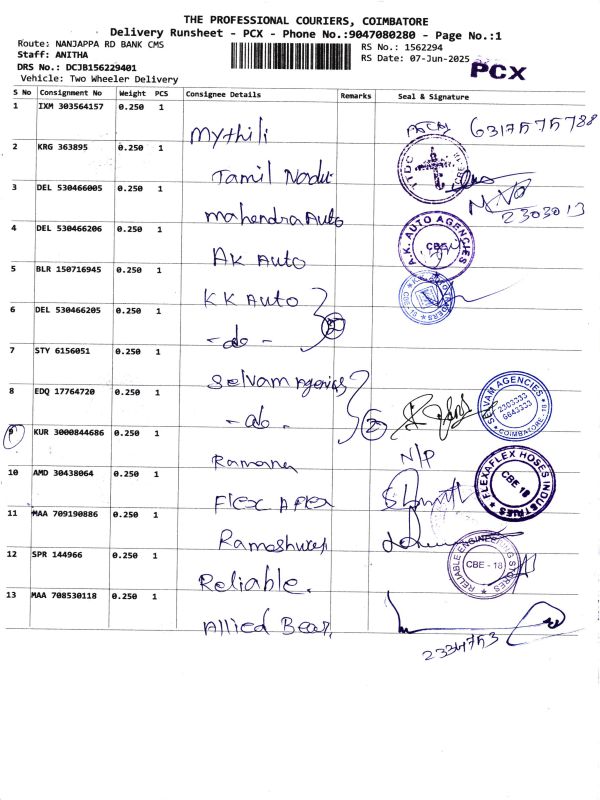 THE PROFESSIONAL COURIERS, COIMBATORE
Delivery Runsheet - PCX - Phone No.:9047080280 - Page No.:1
Route: NANJAPPA RD BANK CMS
RS No.: 1562294
Staff: ANITHA
RS Date: 07-Jun-2025
PCX
DRS No.: DCJB156229401
Vehicle: Two Wheeler Delivery
S No Consignment No Weight PCS Consignee Details Remarks Seal & Signature
1 IXM 303564157 0.250 1 Mythili 6317575788
2 KRG 363895 0.250 1 Tamil Nadu
TTDC
3 DEL 530466005 0.250 1 mahendra Auto
2303013
4 DEL 530466206 0.250 1 AK Auto
A.K. AUTO AGENCIES
CBE
5 BLR 150716945 0.250 1 KK Auto
6 DEL 530466205 0.250 1 - do - 2
7 STY 6156051 0.250 1 Selvam Agencies
8 EDQ 17764720 0.250 1 - do - 2
SELVAM AGENCIES
2303333
6643333
COIMBATORE - 18
9 KUR 3000844686 0.250 1 Ramana N/P
10 AMD 30438064 0.250 1 Flex A Flex
FLEXAFLEX HOSES INDUSTRIES
CBE 18
11 MAA 709190886 0.250 1 Rameshwar
12 SPR 144966 0.250 1 Reliable.
RELIABLE ENGINEERING STORES
CBE - 18
13 MAA 708530118 0.250 1 Allied Bear.
2334753